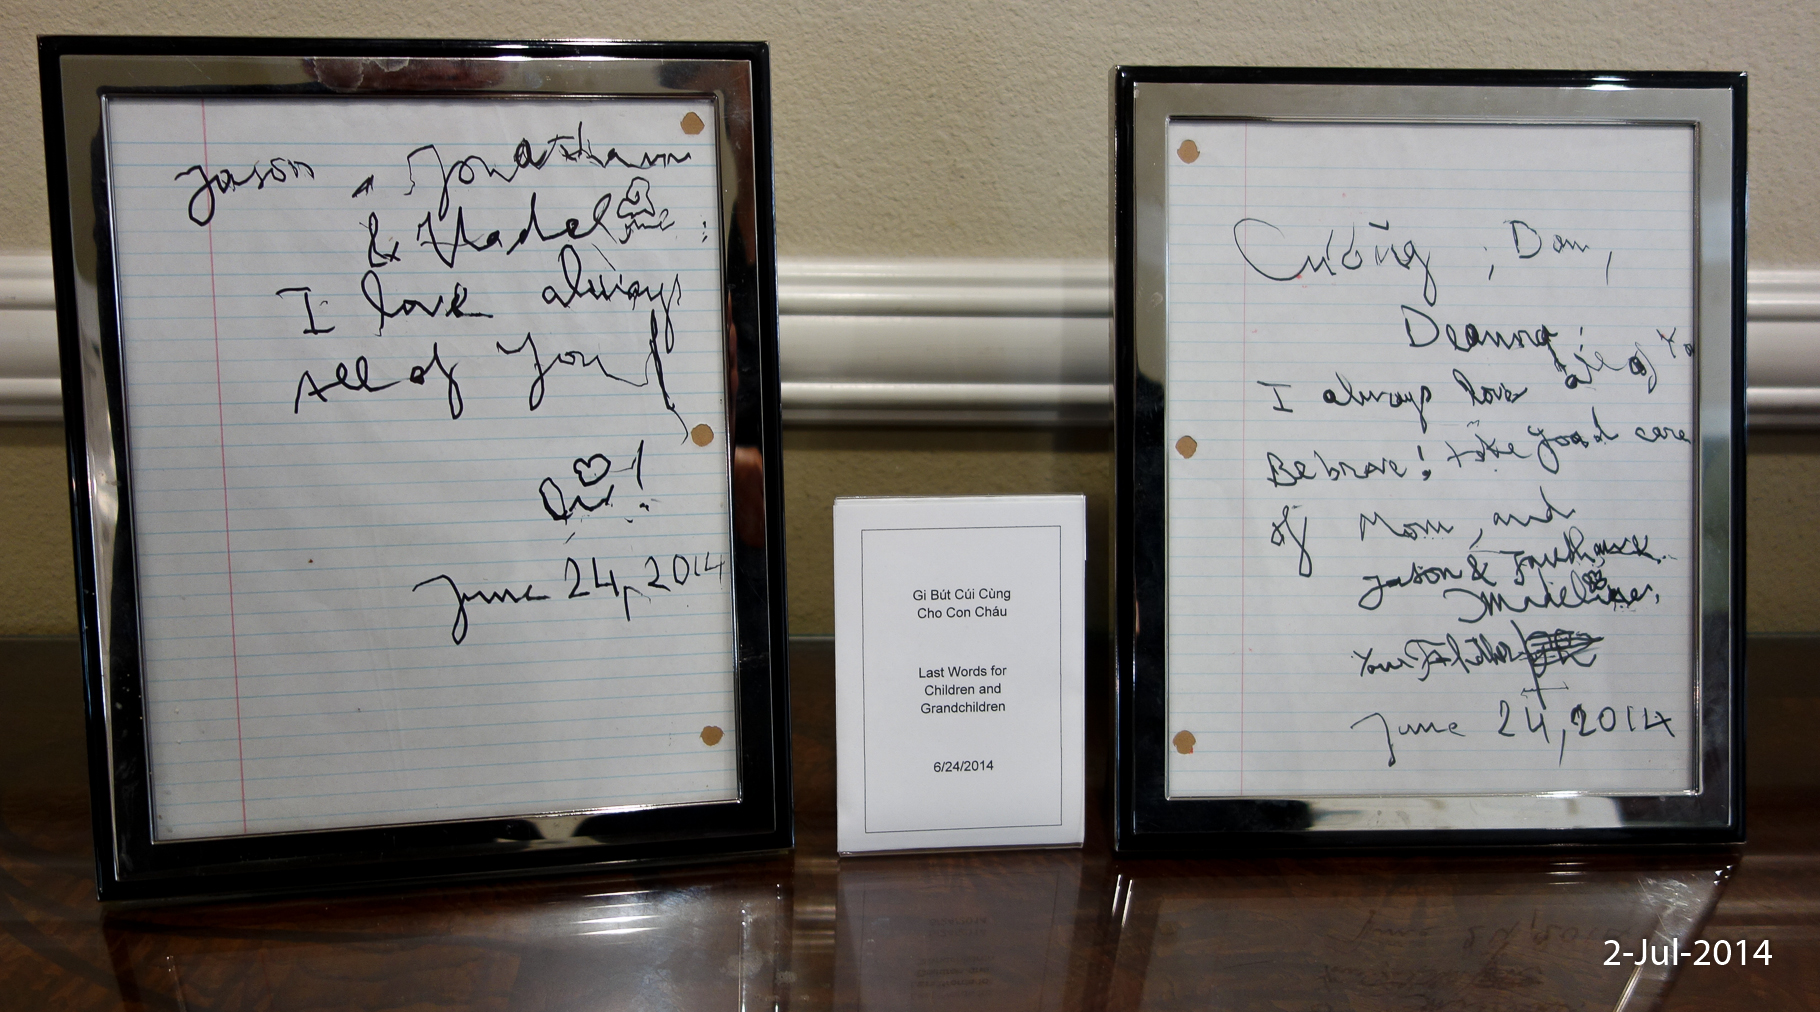 Jason, Jonathan
&
I love always
All of You
June 24, 2014
Gi Bút Cúi Cùng
Cho Con Cháu
Last Words for
Children and
Grandchildren
6/24/2014
Cường, Dan,
Deanna:
I always love all of Yo
Be brave! take good care
of Mom, and
Jason & Jonathan
Your Father
June 24, 2014
2-Jul-2014